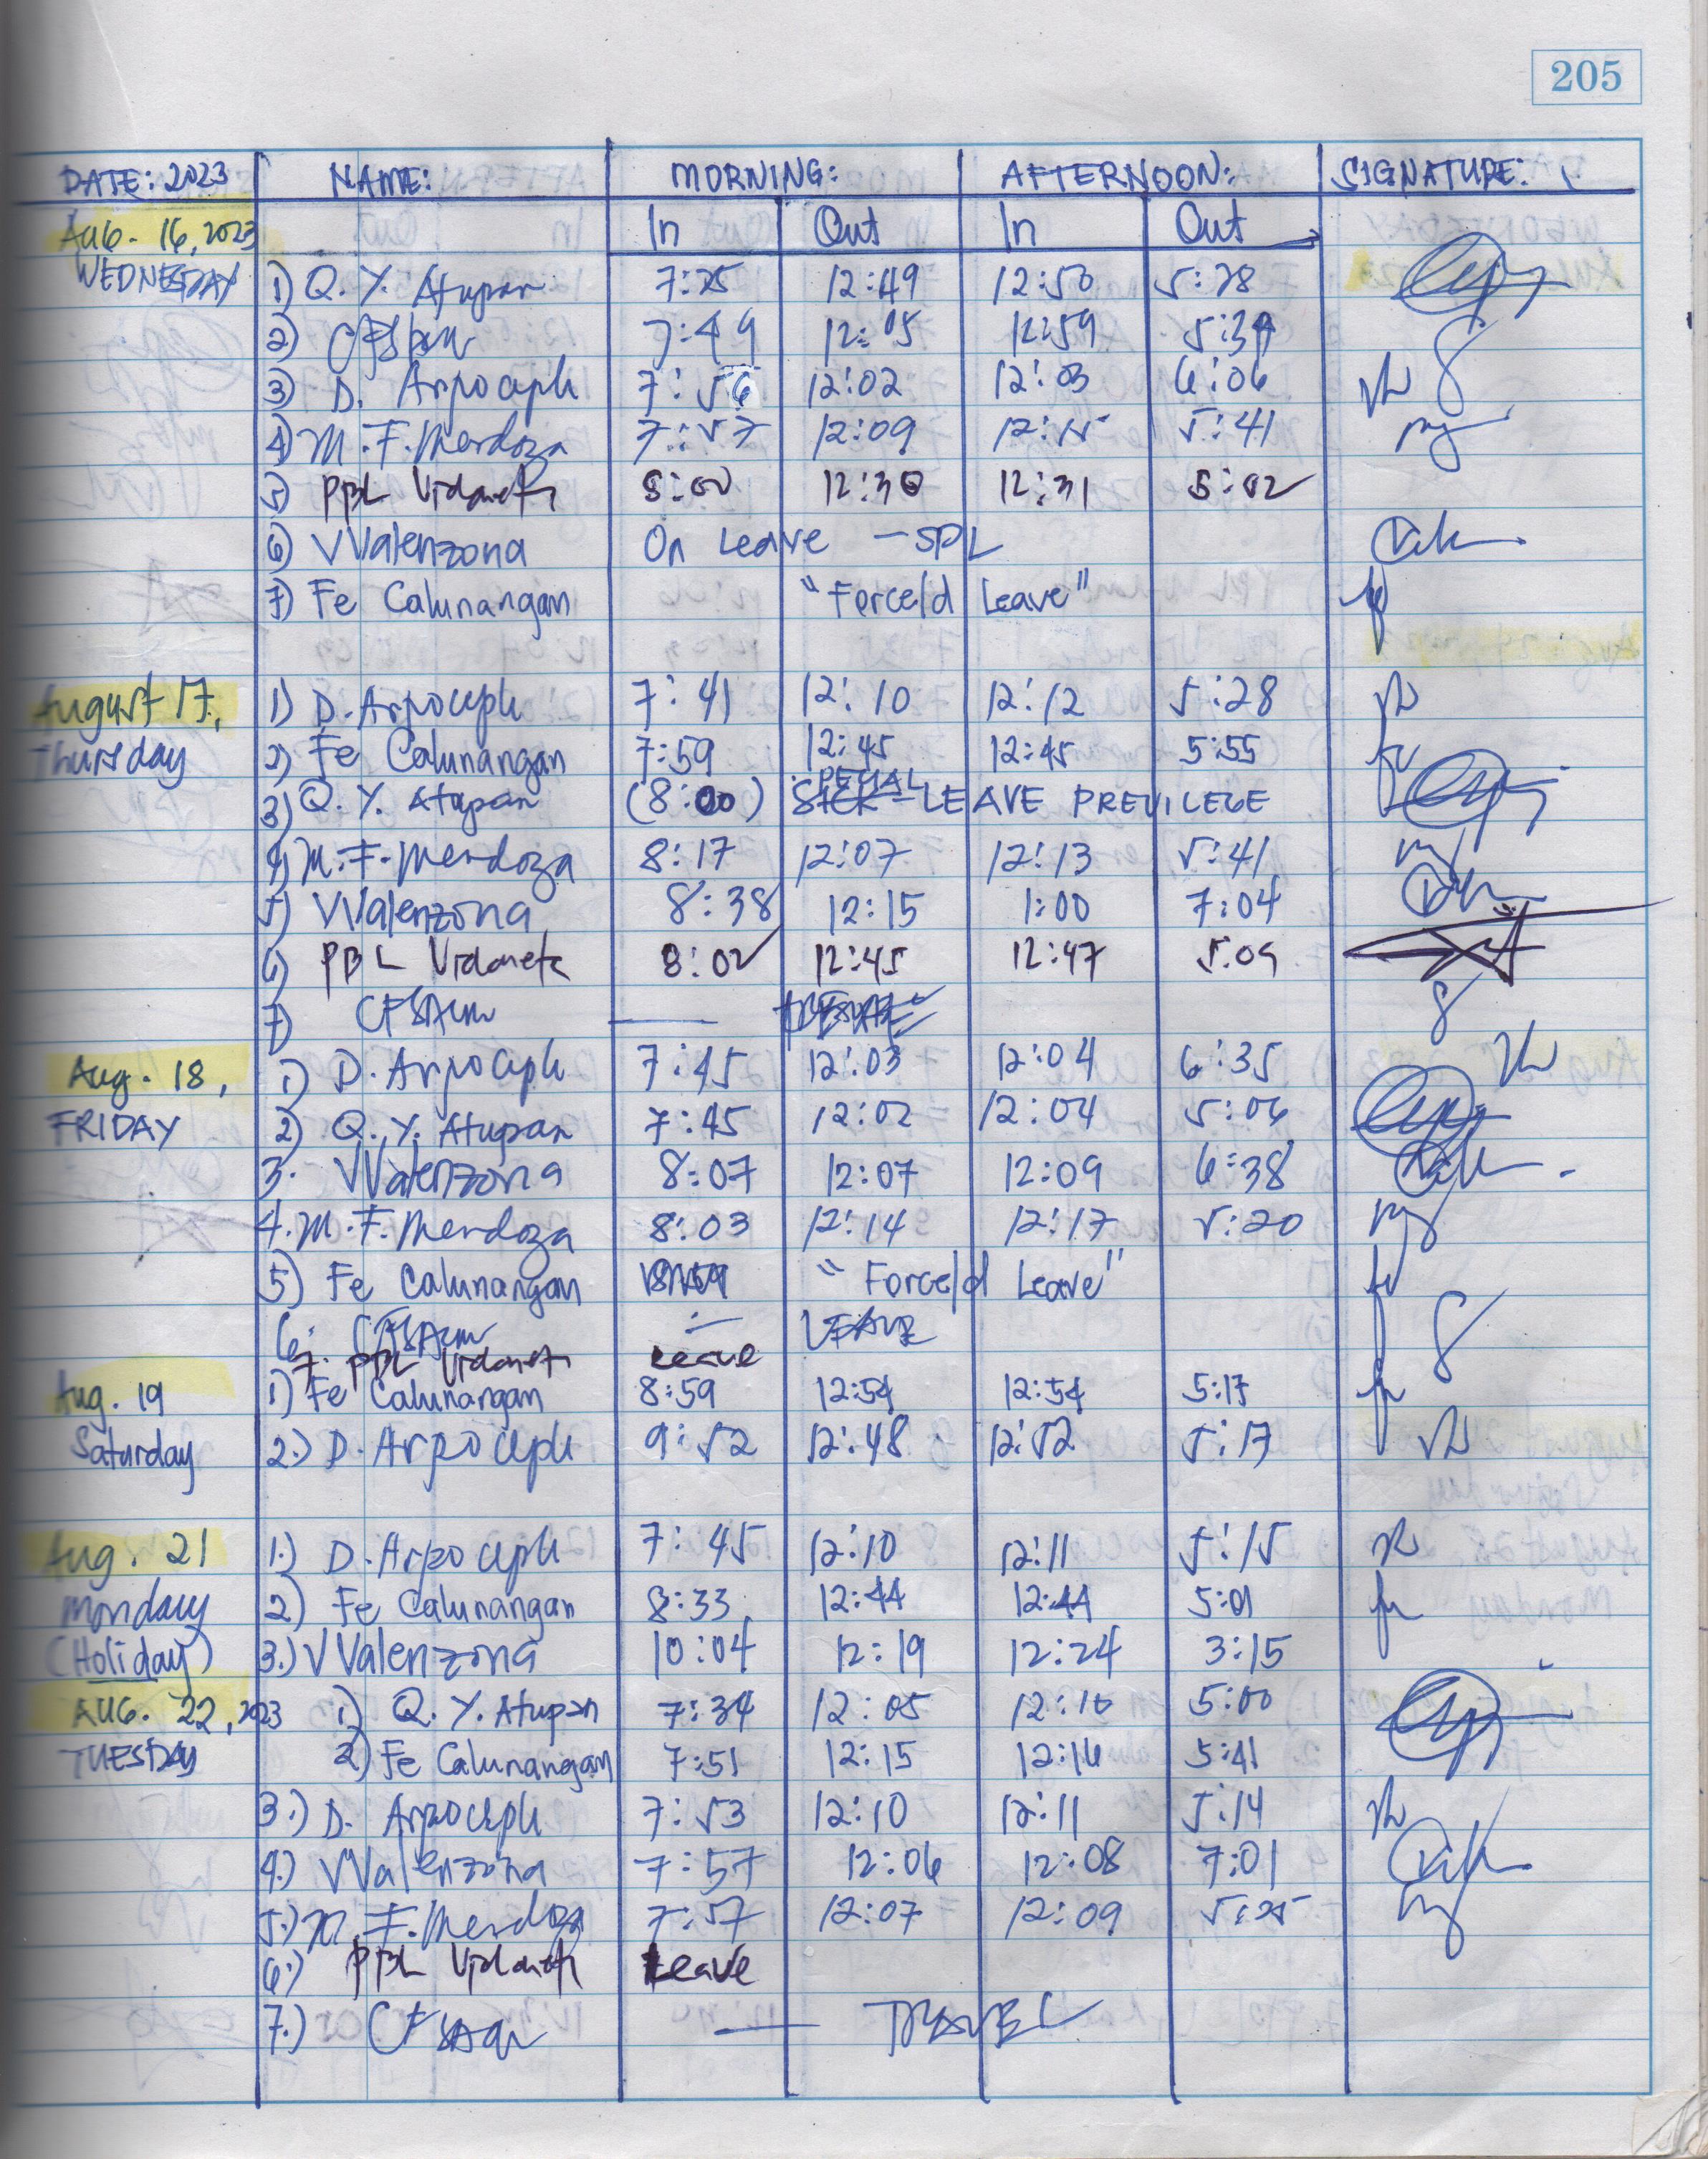 205
DATE: 2023 NAME: MORNING: AFTERNOON: SIGNATURE:
AUG. 16, 2023 In Out In Out
WEDNESDAY 1) Q. Y. Atupan 7:25 12:49 12:50 5:28
2) 7:49 12:05 12:59 5:39
3) D. Arpoceph 7:56 12:02 12:03 6:06
4) M. F. Mendoza 7:57 12:09 12:15 5:41
5) PBL Vidaneta 8:00 12:30 12:31 5:02
6) VValenzona On Leave - SPL
7) Fe Calunangan "Forced Leave"
August 17, 1) D. Arpoceph 7:41 12:10 12:12 5:28
Thursday 2) Fe Calunangan 7:59 12:45 12:45 5:55
3) Q. Y. Atupan (8:00) SPECIAL LEAVE PREVILEGE
4) M. F. Mendoza 8:17 12:07 12:13 5:41
5) VValenzona 8:38 12:15 1:00 7:04
6) PBL Vidaneta 8:02 12:45 12:47 5:09
7)
Aug. 18, 1) D. Arpoceph 7:45 12:03 12:04 6:35
FRIDAY 2) Q. Y. Atupan 7:45 12:02 12:04 5:06
3. VValenzona 8:07 12:07 12:09 6:38
4. M. F. Mendoza 8:03 12:14 12:17 5:20
5) Fe Calunangan "Forced Leave"
6. LEAVE
7. PBL Vidaneta Leave
Aug. 19 1) Fe Calunangan 8:59 12:54 12:54 5:17
Saturday 2.) D. Arpoceph 9:52 12:48 12:52 5:17
Aug. 21 1.) D. Arpoceph 7:45 12:10 12:11 5:15
Monday 2) Fe Calunangan 8:33 12:44 12:44 5:01
(Holiday) 3.) VValenzona 10:04 12:19 12:24 3:15
AUG. 22, 2023 1) Q. Y. Atupan 7:34 12:05 12:10 5:00
TUESDAY 2) Fe Calunangan 7:51 12:15 12:16 5:41
3.) D. Arpoceph 7:53 12:10 12:11 5:14
4.) VValenzona 7:57 12:06 12:08 7:01
5.) M. F. Mendoza 7:57 12:07 12:09 5:25
6.) PBL Vidaneta Leave
7.) TRAVEL